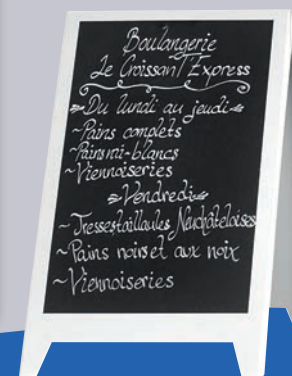 Boulangerie
Le Croissant l'Express
Du lundi au jeudi
~Pains complets
~Pains mi-blancs
~Viennoiseries
Vendredi
~Tresses, taillaules Neuchâteloises
~Pains noirs et aux noix
~Viennoiseries